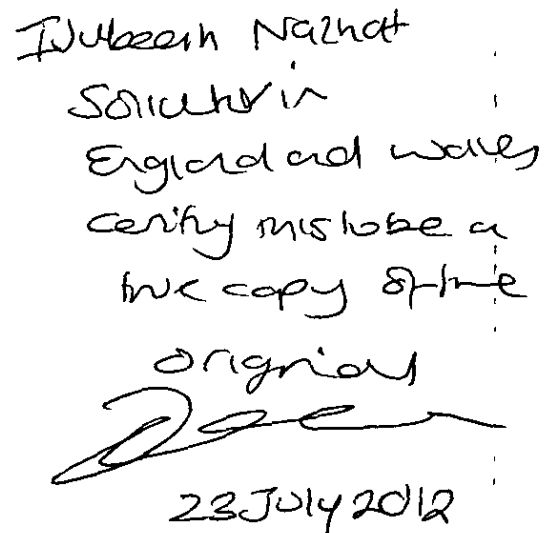 Nazhat
Solicitor in
England and Wales
certify this to be a
true copy of the
original
23 July 2012